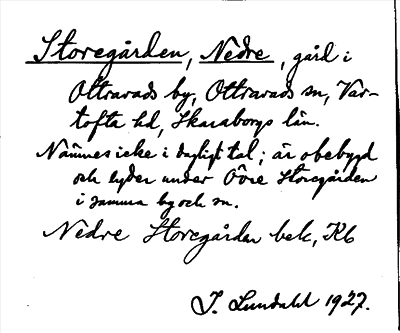 Storegården, Nedre, gård i
Ottravads by, Ottravads sn, Var-
tofta hd, Skaraborgs län.
Nämnes icke i dagligt tal; är obebygd
och lyder under Övre Storegården
i samma by och sn.
Nedre Storegården bek, Kb
J. Lundahl 1927.